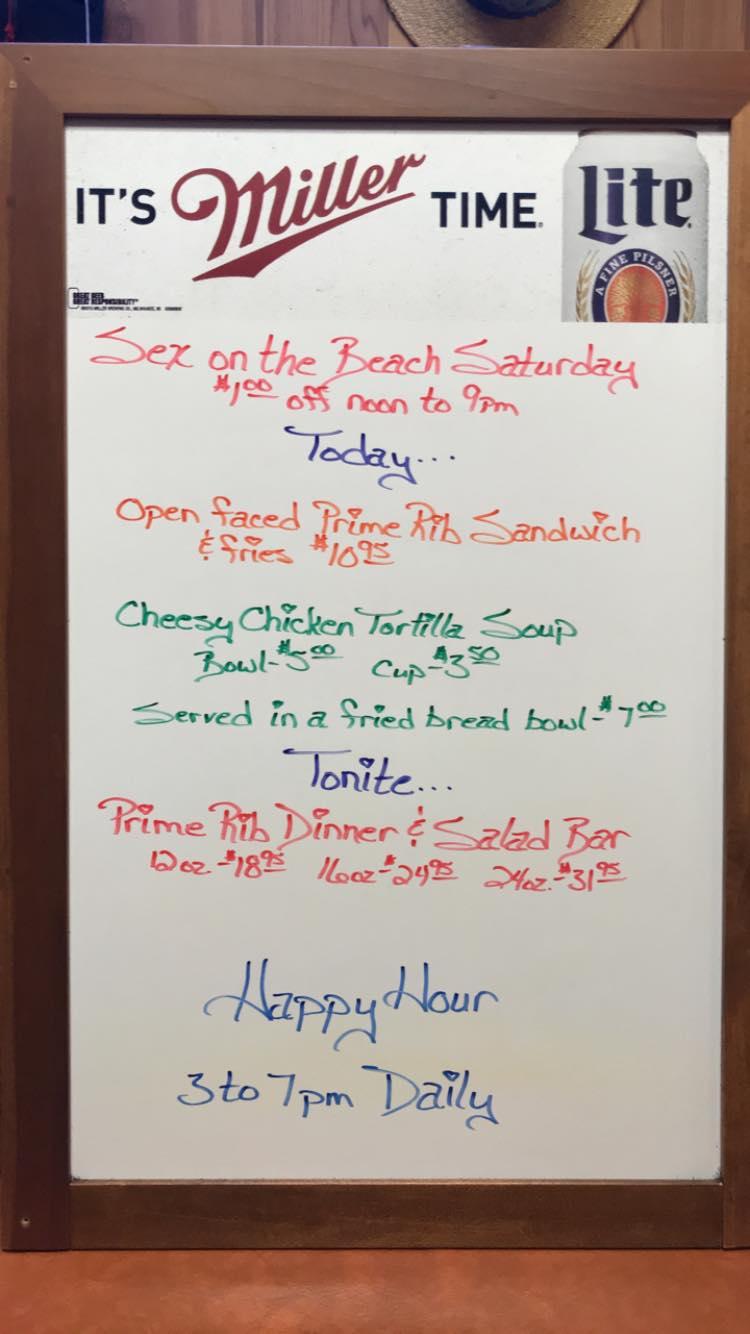 IT'S Miller TIME.
Lite
A FINE PILSNER
GREAT BEER
GREAT RESPONSIBILITY
Sex on the Beach Saturday
$1.00 off noon to 9pm
Today...
Open faced Prime Rib Sandwich
& fries $10.95
Cheesy Chicken Tortilla Soup
Bowl-$5.00 Cup-$3.50
Served in a fried bread bowl-$7.00
Tonite...
Prime Rib Dinner & Salad Bar
12oz.-$18.95 16oz-$24.95 24oz.-$31.95
Happy Hour
3 to 7pm Daily